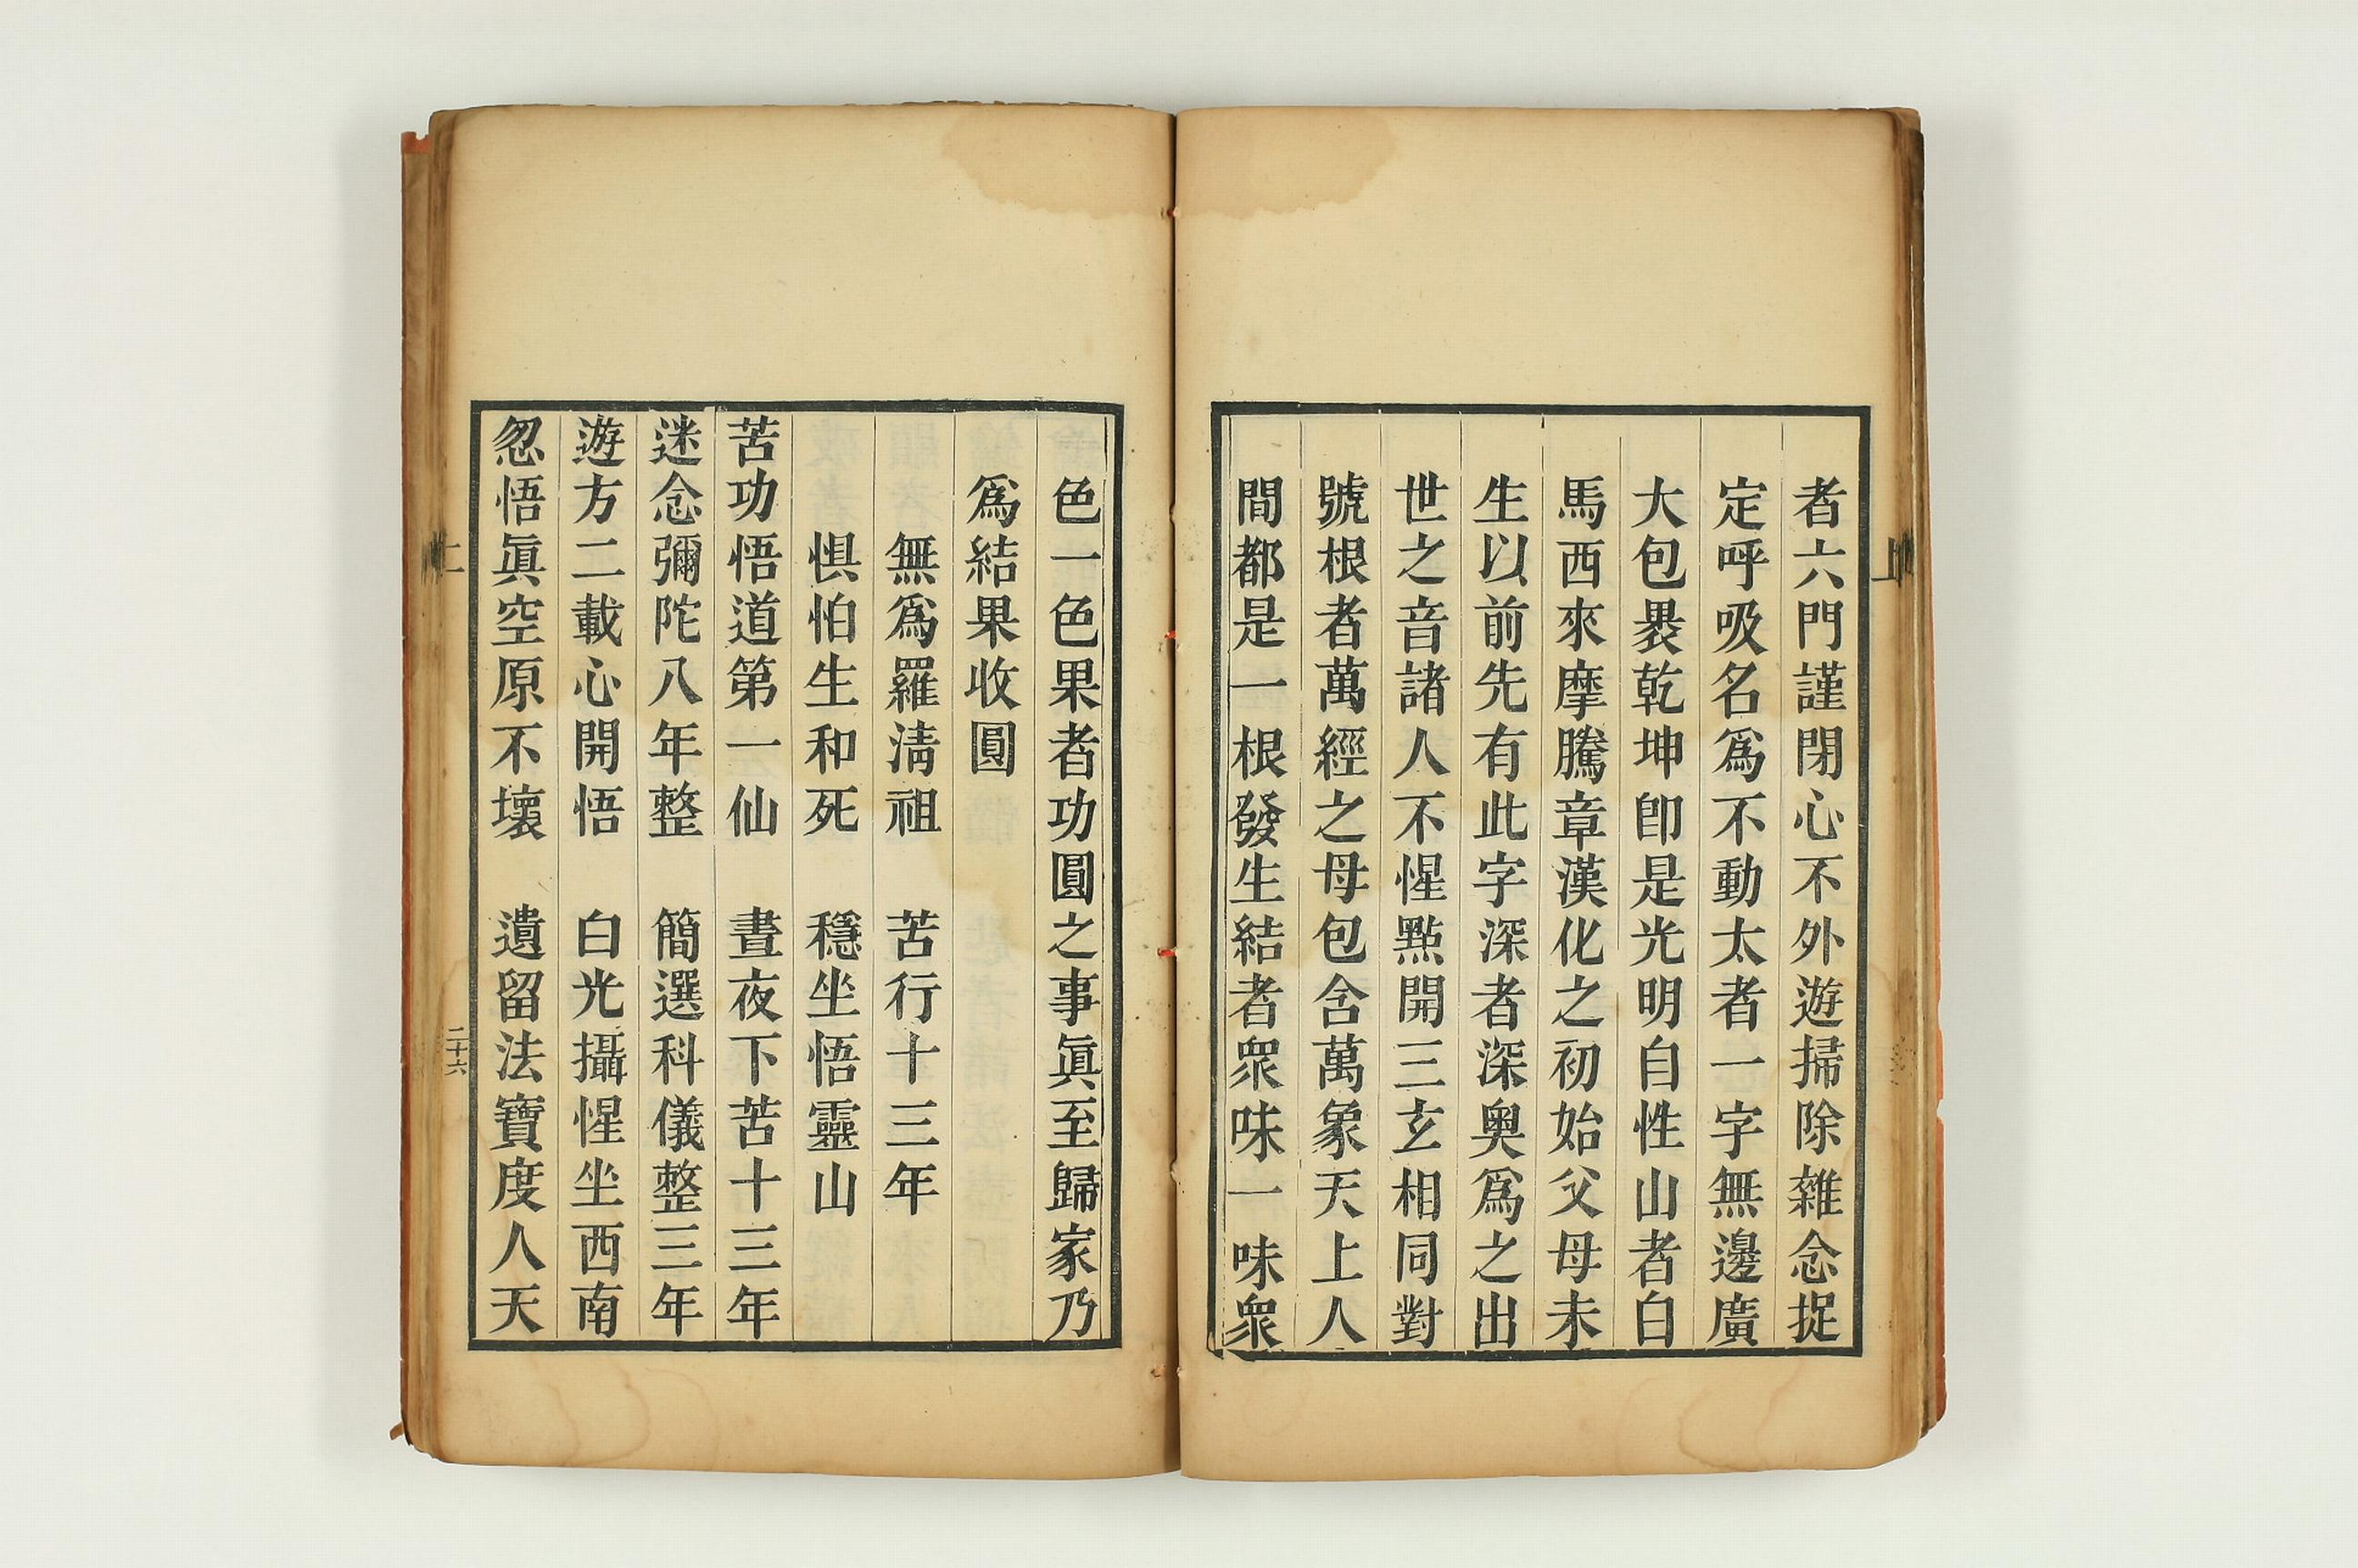 者六門謹閉心不外遊掃除雜念捉
定呼吸名爲不動太者一字無邊廣
大包褁乾坤卽是光明自性山者白
馬西來摩騰章漢化之初始父母未
生以前先有此字深者深奧爲之出
世之音諸人不惺點開三玄相同對
號根者萬經之母包含萬象天上人
間都是一根發生結者衆味一味衆
色一色果者功圓之事眞至歸家乃
爲結果收圓
無爲羅淸祖　苦行十三年
惧怕生和死　穩坐悟靈山
苦功悟道第一仙　晝夜下苦十三年
迷念彌陀八年整　簡選科儀整三年
遊方二載心開悟　白光攝惺坐西南
忽悟眞空原不壞　遺留法寶度人天
二十六